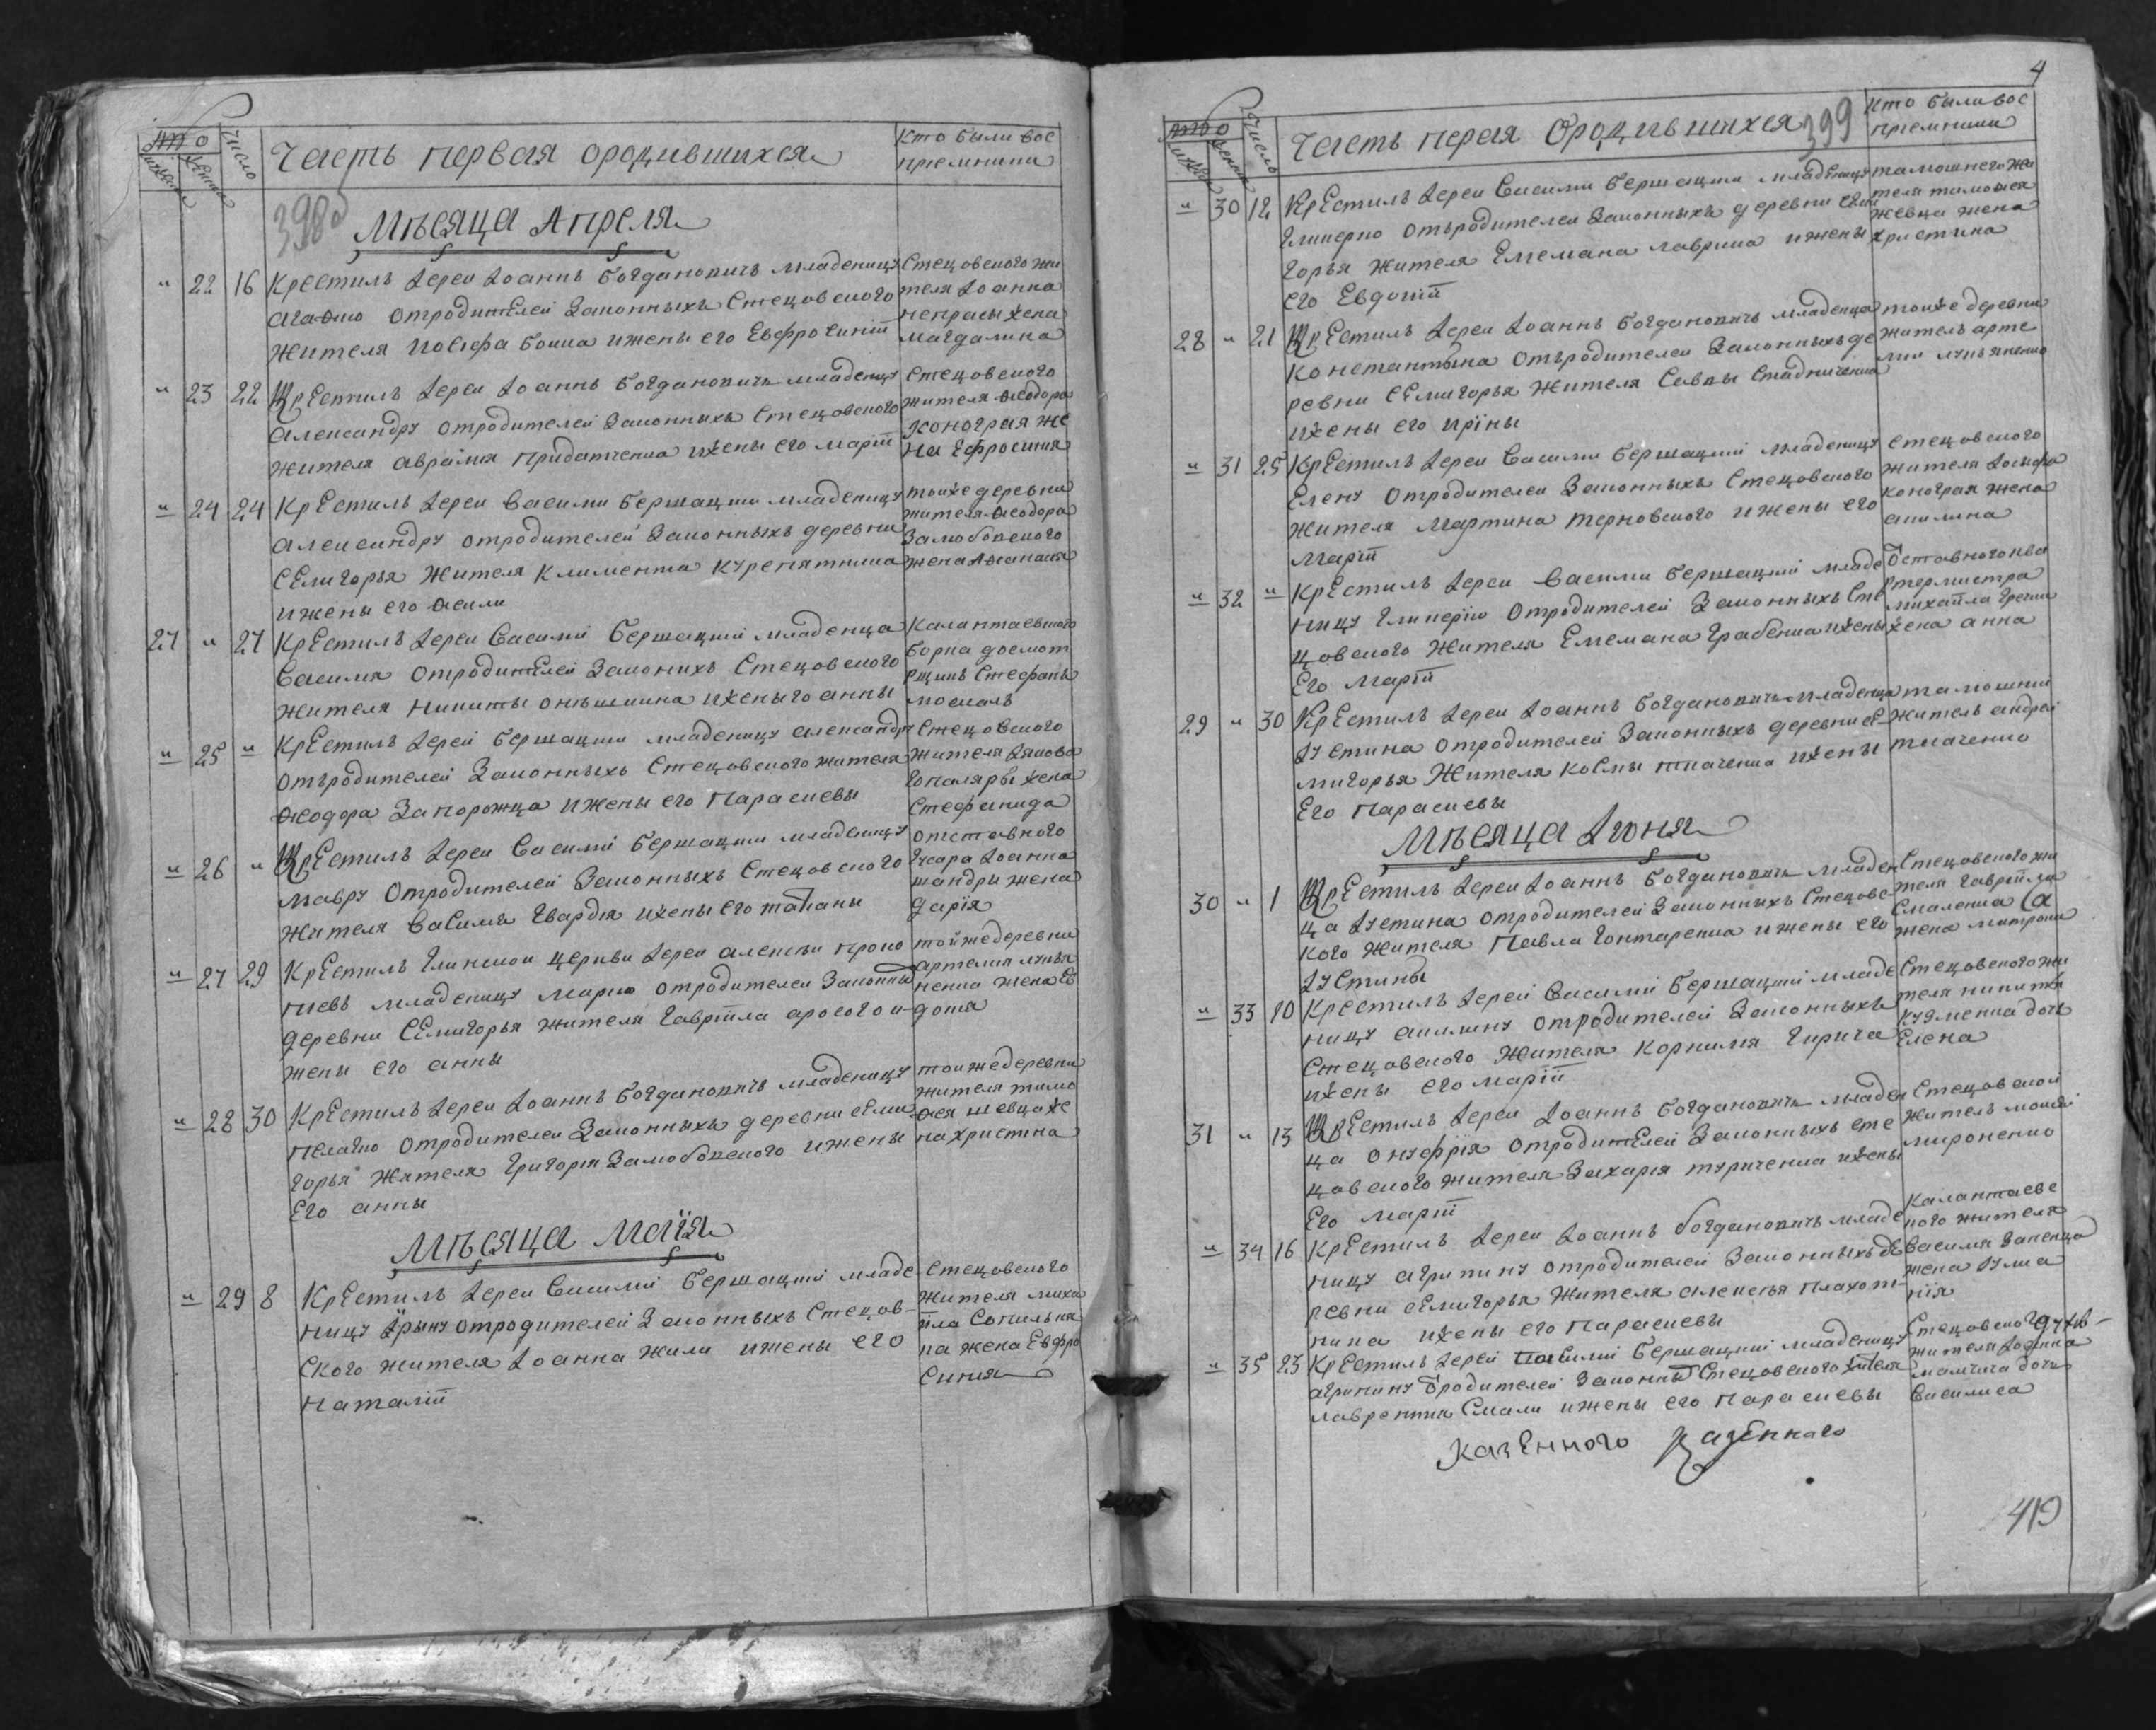 Число
Часть первая ородившихся
Кто были вос
приемники
398
Мѣсяца Апреля
" 22 16 Крестилъ Іереи Іоаннъ Богдановичъ младеницу
Агафию отродителей Законныхъ Стецовского
жителя Иосифа Бойка ижены его Евфросиніи
Стецовского жи
теля Іоанна
жена
магдалина
" 23 22 Крестилъ Іереи Іоаннъ Богдановичъ младеницу
Александру отродителей Законныхъ Стецовского
жителя Аврамия Придатченка ижены его Маріи
Стецовского
жителя Ѳеодора
Конограя же
на Ефросиния
" 24 24 Крестилъ Іереи Василии Бершацкии младеницу
Александру отродителей Законныхъ деревни
Селигорья Жителя Климента Курепятника
ижены его
тоиже деревни
жителя Ѳеодора
жена
27 " 27 Крестилъ Іереи Василий Бершацкий младенца
Василия отродителей Законихъ Стецовского
Жителя Никиты ижены его анны
Калантаевского
Стефанъ
" 25 " Крестилъ Іерей Бершацкии младеницу александру
отъродителей Законныхъ Стецовского жителя
Ѳеодора Запорожца ижены его Параскевы
Стецовского
жителя Іякова
жена
Стефанида
" 26 " Крестилъ Іереи Василий Бершацкии младеницу
Мавру отродителей Законныхъ Стецовского
жителя Василия ижены его татианы
отставного
Гусара Іоанна
шандри жена
дарія
" 27 29 Крестилъ Глинской церкви Іереи алексѣи Проко
пиевъ младеницу Марию отродителей Законны
деревни Селигорья жителя Гавріила аросого и
жены его анны
тойжедеревни
артемия лукья
ненка жена Ев
докия
" 28 30 Крестилъ Іереи Іоаннъ Богдановичъ младеницу
Пелагию отродителеи Законныхъ деревни сели
горья Жителя Григория ижены
Его анны
тоижедеревни
жителя тимо
фея шевца же
на христина
Мѣсяца Маїя
" 29 8 Крестилъ Іереи Василий Бершацкий младе
ницу Ірыну отродителей Законныхъ Стецов-
ского жителя Іоанна Жили ижены его
Наталіи
Стецовского
жителя миха
ила Сопильня
ка жена Евфро
синия
4
Число
Часть перая Ородившихся
399
Кто были вос
приемники
" 30 12 Крестилъ Іереи Василии Бершацкии младеницу
Гликерию отъродителеи Законныхъ деревни сели
горья жителя Емемана лаврика ижены
его Евдокіи
тамошнего жи
теля тимофея
жевца жена
христина
28 " 21 Крестилъ Іереи Іоаннъ Богдановичъ младенца
Константына отъродителеи Законныхъ де
ревни Селигорья Жителя Саввы Стадниченка
ижены его ирїны
тоиже деревни
житель арте
мии лукьяненко
" 31 25 Крестилъ Іереи Василии Бершацкий младеницу
Елену отродителеи Законныхъ Стецовского
жителя Мартина терновского ижены его
Маріи
Стецовского
жителя Іосифа
конограя жена
акилина
" 32 " Крестилъ Іереи Василии Бершацкий младе
ницу Гликерїю Отродителей Законныхъ Сте
цовского жителя Емемана Грабенка ижены
Его Маріи
Отставного ква
ртермистра
михаила Гречки
жена анна
29 " 30 Крестилъ Іереи Іоаннъ Богдановичъ младенца
Іустина отродителей Законныхъ деревни се-
лигорья Жителя Космы ткаченка ижены
Его Параскевы
тамошни
житель андрей
ткаченко
Мѣсяца Іюня
30 " 1 Крестилъ Іереи Іоаннъ Богдановичъ младен
ца Іустина отродителей Законныхъ Стецовс
кого жителя Павла Гонтаренка ижены его
Іустины
Стецовского жи
теля Гавріила
Смаленка
жена матрона
" 33 10 Крестилъ Іерей Василий Бершацкий младе
ницу акилину отродителей Законныхъ
Стецовского жителя Корнилия Гирича
ижены его маріи
Стецовского жи
теля никиты
кузменка дочь
Елена
31 " 13 Крестилъ Іереи Іоаннъ Богдановичъ младен
ца Онуфрія отродителей Законныхъ сте
цовского жителя Захарія туриченка ижены
Его Маріи
Стецовской
житель моисей
мироненко
" 34 16 Крестилъ Іереи Іоаннъ Богдановичъ младе
ницу агрипину отродителей Законныхъ де
ревни селигорья жителя алексѣя плахот-
ника ижены его Параскевы
Калантаевс
кого жителя
Василия
жена
" 35 23 Крестилъ Іерей Василий Бершацкий младеницу
агрипину Отродителей Законны Стецовского жителя
лаврентия Смали ижены его Параскевы
Стецовского
жителя
дочь
Василиса
Казенного Казенного
419